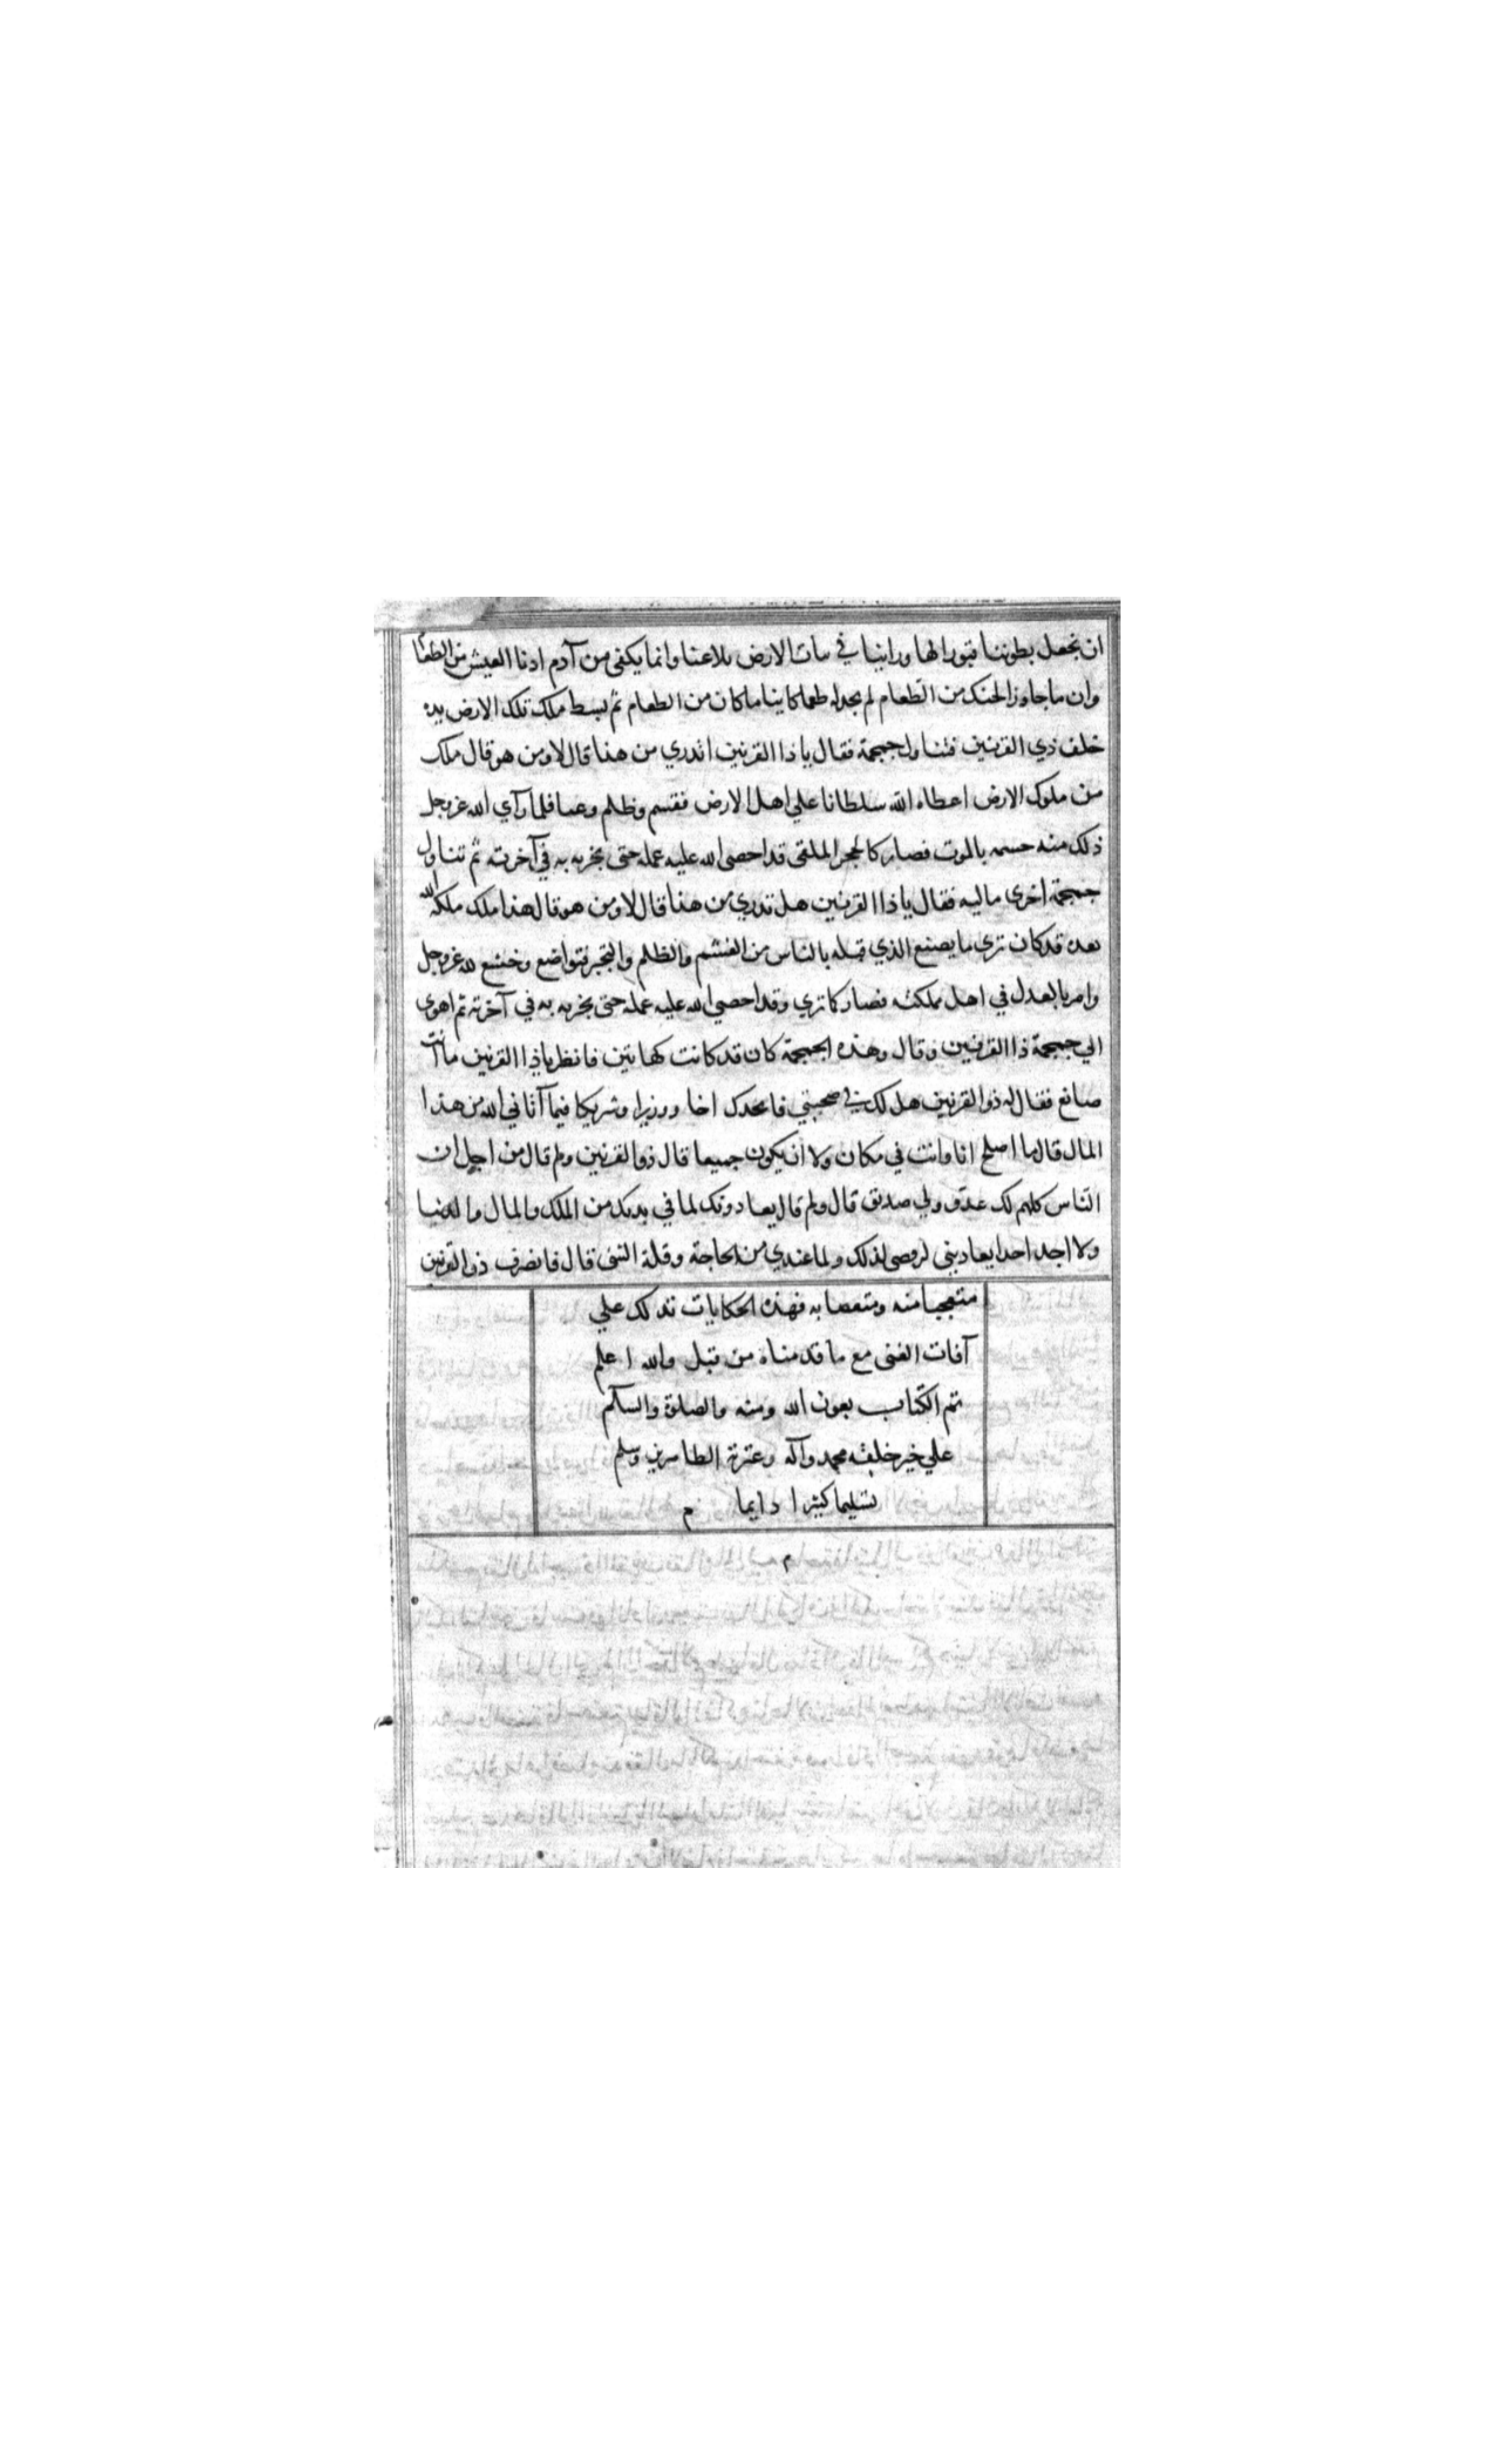 ان نجعل بطوننا قبورا لها وراينا في نبات الارض بلاغنا وانما يكفى من آدم ادنا العيش من الطعام
وان ماجاوز الحنك من الطعام لم يجد له طعما كاينا ما كان من الطعام ثم بسط ملك تلك الارض يده
خلف ذي القرنين فتناول جمجمة فقال يا ذا القرنين اتدري من هذا قال لا ومن هو قال ملك
من ملوك الارض اعطاه الله سلطانا علي اهل الارض فقسم وظلم وعتا فلما رآي الله عز وجل
ذلك منه حسمه بالموت فصار كالحجر الملقى قد احصى الله عليه عمله حتى يجزيه به في آخرته ثم تناول
جمجمة اخرى باليه فقال يا ذا القرنين هل تدري من هذا قال لا ومن هو قال هذا ملك ملكه الله
بعده قد كان ترى ما يصنع الذي قبله بالناس من الغشم والظلم والتجبر فتواضع وخشع لله عز وجل
وامر بالعدل في اهل مملكته فصار كما تري وقد احصي الله عليه عمله حتى يجزيه به في آخرته ثم اهوى
الي جمجمة ذا القرنين وقال وهذه الجمجمة كان قد كانت كهاتين فانظر يا ذا القرنين ما انت
صانع فقال له ذو القرنين هل لك في صحبتي فاتخذك اخا ووزيرا وشريكا فيما آتاني الله من هذا
المال قال ما اصلح انا وانت في مكان ولا ان يكون جميعا قال ذو القرنين ولم قال من اجل ان
الناس كلهم لك عدو ولي صديق قال ولم قال يعادونك لما في يدك من الملك والمال والدنيا
ولا اجد احدا يعاديني لرفضى لذلك ولما عندي من الحاجة وقلة الشى قال فانصرف ذو القرنين
متعجبا منه ومتعضا به فهذه الحكايات تدلك علي
آفات الغنى مع ما قدمناه من قبل والله اعلم
تم الكتاب بعون الله ومنه والصلوة والسلام
علي خير خلقه محمد وآله وعترته الطاهرين وسلم
تسليما كثيرا دايما م
م